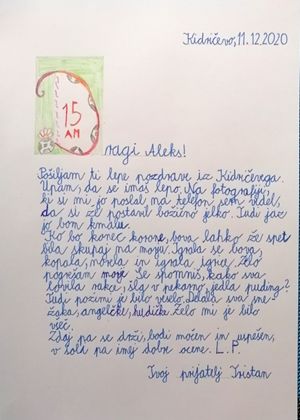 Kidričevo, 11.12.2020
15
AM
ragi Aleks!
Pošiljam ti lepe pozdrave iz Kidričevega.
Upam, da se imaš lepo. Na fotografiji,
ki si mi jo poslal na telefon sem videl,
da si že postavil božično jelko. Tudi jaz
jo bom kmalu.
Ko bo konec korone, bova lahko že spet
bila skupaj na morju. Igrala se bova,
kopala, norela in igrala igrice. Zelo
pogrešam morje. Se spomniš, kako sva
lovila rake, šla v pekarno, jedla puding?
Tudi pozimi je bilo veselo. Delala sva sne-
žake, angelčke, hudičke. Zelo mi je bilo
všeč.
Zdaj pa se drži, bodi močen in uspešen,
v šoli pa imej dobre ocene. L.P.
Tvoj prijatelj Tristan